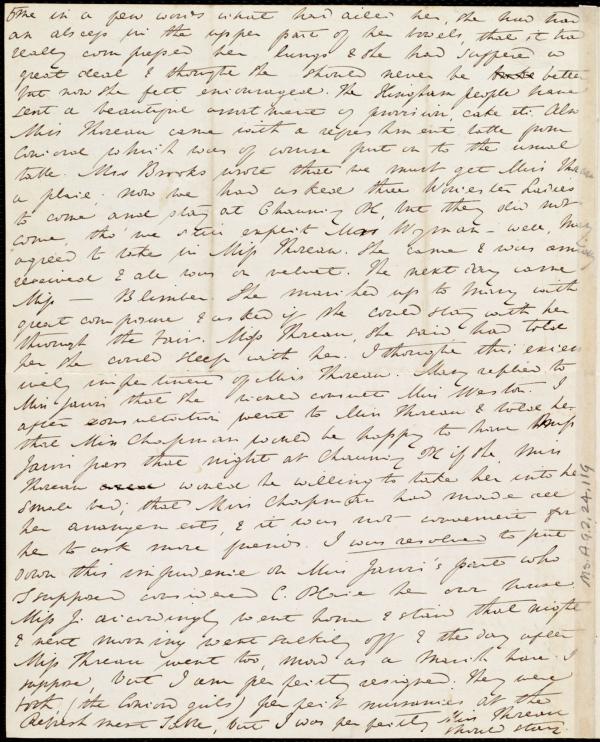 me in a few words what had ailed her, she had had
an abscess in the upper part of her bowels, that it had
really compressed her lungs & she had suffered a
great deal & thought she should never be better
but now she felt encouraged. The Hingham people have
sent a beautiful assortment of provision, cake etc. Also
Miss Thoreau came with a refreshment table from
Concord which was of course put on to the usual
table. Mrs Brooks wrote that we must get Miss Thoreau
a place; now we had asked three Worcester ladies
to come and stay at Chauncy Pl, but they did not
come, tho' we still expect Mrs Wyman - well, Mary
agreed to take in Miss Thoreau. She came & was
received & all was on velvet. The next day came
Miss — Blimber. She marched up to Mary with
great composure & asked if she could stay with her
through the Fair. Miss Thoreau, she said had told
her she could sleep with her. I thought this exces
sively impertinent of Miss Thoreau. Mary replied to
Miss Jarvis that she would consult Miss Weston. I
after consultation went to Miss Thoreau & told her
that Miss Chapman would be happy to have Miss
Jarvis pass that night at Chauncy Pl if she, Miss
Thoreau would be willing to take her into her
small bed; that Miss Chapman had made all
her arrangements, & it was not convenient for
her to ask more friends. I was resolved to put
down this impudence on Miss Jarvis's part who
I supposed considered C. Place her own house
Miss J. accordingly went home & staid that night
& next morning went sulkily off & the day after
Miss Thoreau went too, mad as a March hare I
suppose, but I am perfectly resigned. They were
both, (the Concord girls) perfect nuisances at the
Refreshment Table, but I was perfectly
Miss Thoreau
should stay.
Ms.A.9.2.24.119